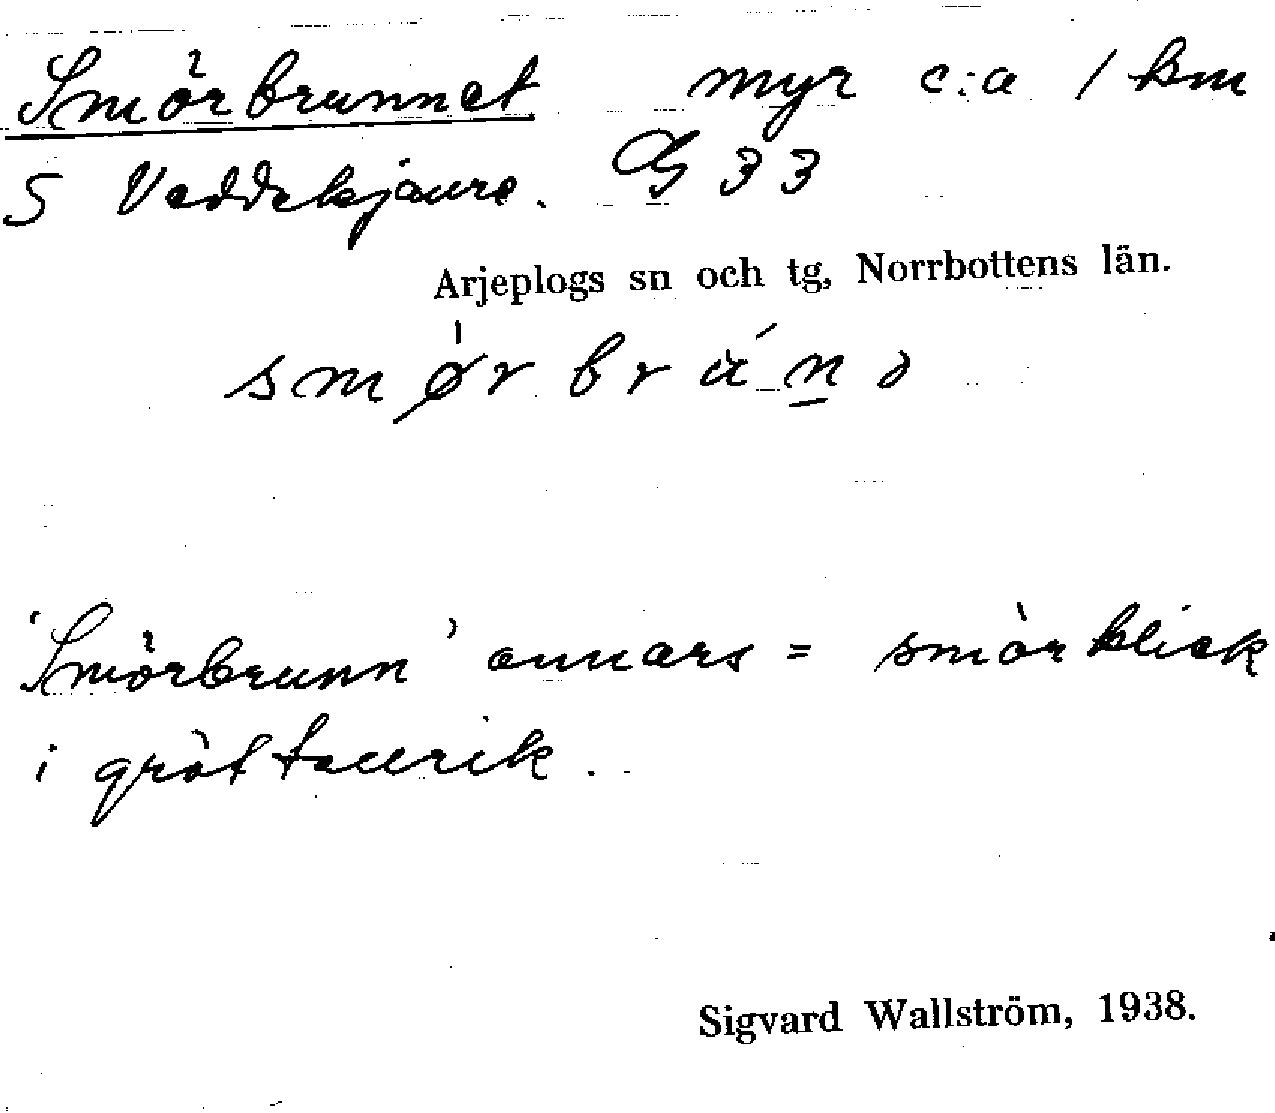 Smörbrunnet myr c:a 1 km
S Veddekjaure. G 33
Arjeplogs sn och tg, Norrbottens län.
smørbrunnet
'Smörbrunn' annars = smörklick
i gröttallrik.
Sigvard Wallström, 1938.